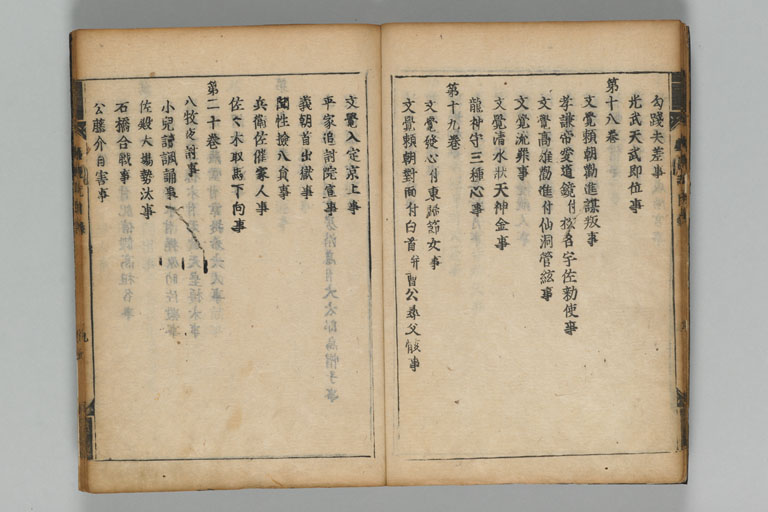 勾踐夫差事
光武天武即位事
第十八巻
文覺頼朝勸進謀叛事
孝謙帝愛道鏡付松名宇佐勅使事
文覺高雄勸進付仙洞管絃事
文覺流罪事
文覺清水狀天神金事
龍神守三種心事
第十九巻
文覺發心付東歸節女事
文覺頼朝對面付白首并曹公尋父骸事
文覺入定京上事
平家追討院宣事
義朝首出獄事
聞性撿八員事
兵衛佐催家人事
佐々木取馬下向事
第二十巻
八牧夜討事
小兒讀諷誦事
佐殿大場勢汰事
石橋合戰事
公藤介自害事